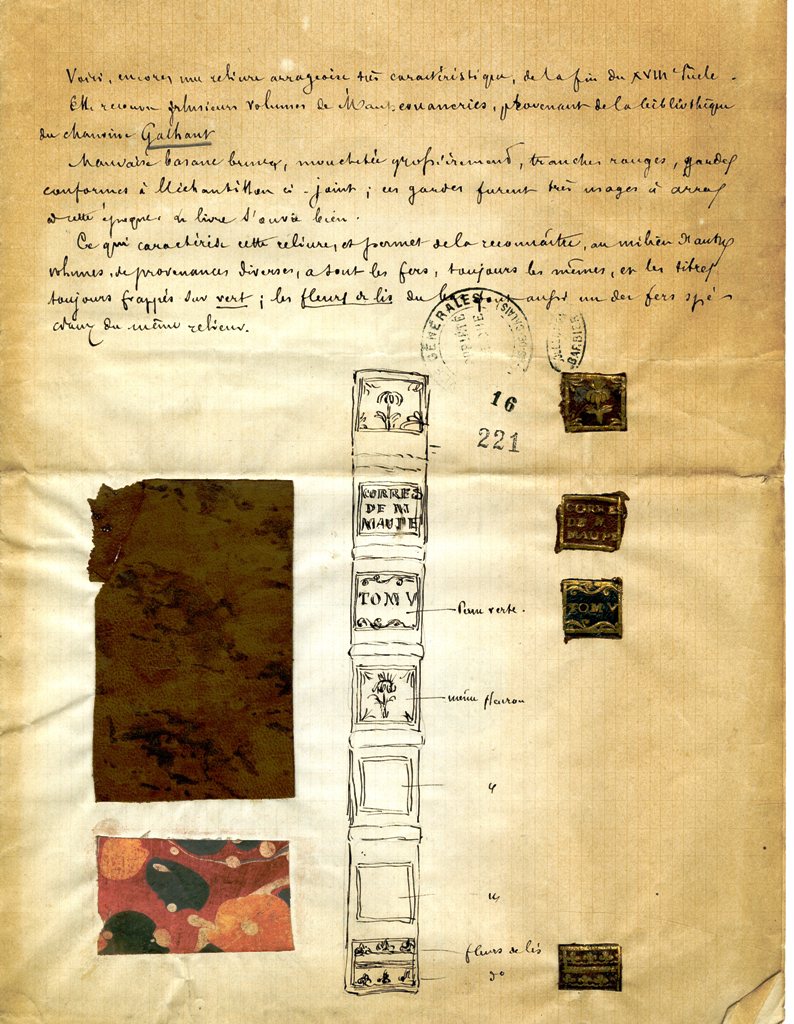 Voici, encore une reliure arrageoise très caractéristique, de la fin du XVIIIe Siècle.
Elle recouvre plusieurs volumes de provenant de la bibliothèque
du chanoine Galhant
Mauvaise basane brune, mouchetée grossièrement, tranches rouges, gardes
conformes à l'échantillon ci-joint ; ces gardes furent très usagés à Arras
à cette époque. Le livre s'ouvre bien.
Ce qui caractérise cette reliure, et permet de la reconnaître, au milieu d'autres
volumes, de provenances diverses, ce sont les fers, toujours les mêmes, et les titres
toujours frappés sur vert ; les fleurs de lis du bas sont aussi un des fers spé-
ciaux du même relieur.
GÉNÉRALES
SOCIÉTÉ
BARBIER
16
221
CORRES
DE M
MAUPE
CORRE
DE M
MAUPE
TOM V
Peau verte.
TOM V
même fleuron
fleurs de lis
do